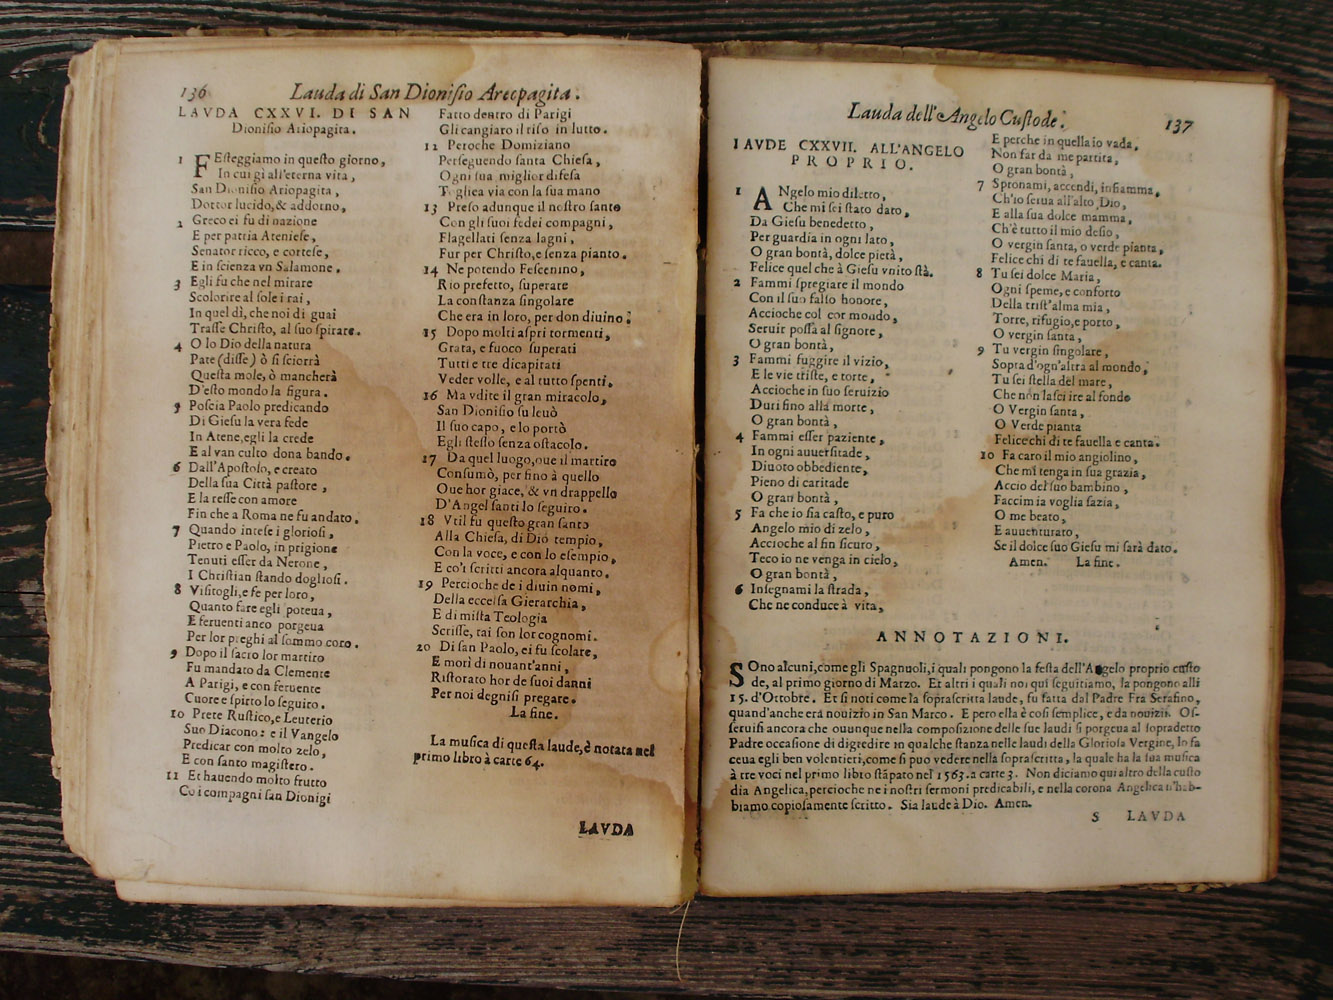 136
Lauda di San Dionisio Areopagita.
LAVDA CXXVI. DI SAN
Dionisio Ariopagita.
1 FEsteggiamo in questo giorno,
In cui gì all'eterna vita,
San Dionisio Ariopagita,
Dottor lucido, & addorno,
2 Greco ei fu di nazione
E per patria Ateniese,
Senator ricco, e cortese,
E in scienza vn Salamone.
3 Egli fu che nel mirare
Scolorire al sole i rai,
In quel dì, che noi di guai
Trasse Christo, al suo spirare.
4 O lo Dio della natura
Pate (disse) ò si sciorrà
Questa mole, ò mancherà
D'esto mondo la figura.
5 Poscia Paolo predicando
Di Giesu la vera fede
In Atene, egli la crede
E al van culto dona bando.
6 Dall'Apostolo, e creato
Della sua Città pastore,
E la resse con amore
Fin che a Roma ne fu andato.
7 Quando intese i gloriosi,
Pietro e Paolo, in prigione
Tenuti esser da Nerone,
I Christian stando dogliosi.
8 Visitogli, e fe per loro,
Quanto fare egli poteua,
E feruenti anco porgeua
Per lor preghi al sommo coro.
9 Dopo il sacro lor martiro
Fu mandato da Clemente
A Parigi, e con feruente
Cuore e spirto lo seguiro.
10 Prete Rustico, e Leuterio
Suo Diacono: e il Vangelo
Predicar con molto zelo,
E con santo magistero.
11 Et hauendo molto frutto
Co i compagni san Dionigi
Fatto dentro di Parigi
Gli cangiaro il riso in lutto.
12 Peroche Domiziano
Perseguendo santa Chiesa,
Ogni sua miglior difesa
Toglica via con la sua mano
13 Preso adunque il nostro santo
Con gli suoi fedei compagni,
Flagellati senza lagni,
Fur per Christo, e senza pianto.
14 Ne potendo Fescenino,
Rio prefetto, superare
La constanza singolare
Che era in loro, per don diuino:
15 Dopo molti aspri tormenti,
Grata, e fuoco superati
Tutti e tre dicapitati
Veder volle, e al tutto spenti.
16 Ma vdite il gran miracolo,
San Dionisio su leuò
Il suo capo, e lo portò
Egli stesso senza ostacolo.
17 Da quel luogo, oue il martiro
Consumò, per fino à quello
Oue hor giace, & vn drappello
D'Angel santi lo seguiro.
18 Vtil fu questo gran santo
Alla Chiesa, di Dio tempio,
Con la voce, e con lo esempio,
E co'i scritti ancora alquanto.
19 Percioche de i diuin nomi,
Della eccelsa Gierarchia,
E di mista Teologia
Scrisse, tai son lor cognomi.
20 Di san Paolo, ei fu scolare,
E morì di nouant'anni,
Ristorato hor de suoi danni
Per noi degnisi pregare.
La fine.
La musica di questa laude, è notata nel
primo libro à carte 64.
LAVDA
Lauda dell'Angelo Custode.
137
LAVDE CXXVII. ALL'ANGELO
PROPRIO.
1 ANgelo mio diletto,
Che mi sei stato dato,
Da Giesu benedetto,
Per guardia in ogni lato,
O gran bontà, dolce pietà,
Felice quel che à Giesu vnito stà.
2 Fammi spregiare il mondo
Con il suo falso honore,
Accioche col cor mondo,
Seruir possa al signore,
O gran bontà,
3 Fammi fuggire il vizio,
E le vie triste, e torte,
Accioche in suo seruizio
Duri fino alla morte,
O gran bontà,
4 Fammi esser paziente,
In ogni auuersitade,
Diuoto obbediente,
Pieno di caritade
O gran bontà,
5 Fa che io sia casto, e puro
Angelo mio di zelo,
Accioche al fin sicuro,
Teco io ne venga in cielo,
O gran bontà,
6 Insegnami la strada,
Che ne conduce à vita,
E perche in quella io vada,
Non far da me partita,
O gran bontà,
7 Spronami, accendi, infiamma,
Ch'io serua all'alto Dio,
E alla sua dolce mamma,
Ch'è tutto il mio desio,
O vergin santa, o verde pianta,
Felice chi di te fauella, e canta.
8 Tu sei dolce Maria,
Ogni speme, e conforto
Della trist'alma mia,
Torre, rifugio, e porto,
O vergin santa,
9 Tu vergin singolare,
Sopra d'ogn'altra al mondo,
Tu sei stella del mare,
Che non lasci ire al fondo
O Vergin santa,
O Verde pianta
Felice chi di te fauella e canta.
10 Fa caro il mio angiolino,
Che mi tenga in sua grazia,
Accio del suo bambino,
Faccim ia voglia sazia,
O me beato,
E auuenturato,
Se il dolce suo Giesu mi sarà dato.
Amen. La fine.
ANNOTAZIONI.
SOno alcuni, come gli Spagnuoli, i quali pongono la festa dell'Angelo proprio custo
de, al primo giorno di Marzo. Et altri i quali noi qui seguitiamo, la pongono alli
15. d'Ottobre. Et si noti come la soprascritta laude, fu fatta dal Padre Fra Serafino,
quand'anche era nouizio in San Marco. E pero ella è cosi semplice, e da nouizii. Os-
seruisi ancora che ouunque nella composizione delle sue laudi si porgeua al sopradetto
Padre occasione di digredire in qualche stanza nelle laudi della Gloriosa Vergine, lo fa
ceua egli ben volentieri, come si può vedere nella soprascritta, la quale ha la sua musica
à tre voci nel primo libro stāpato nel' 1563. a carte 3. Non diciamo qui altro della custo
dia Angelica, percioche ne i nostri sermoni predicabili, e nella corona Angelica n'hab-
biamo copiosamente scritto. Sia laude à Dio. Amen.
S LAVDA